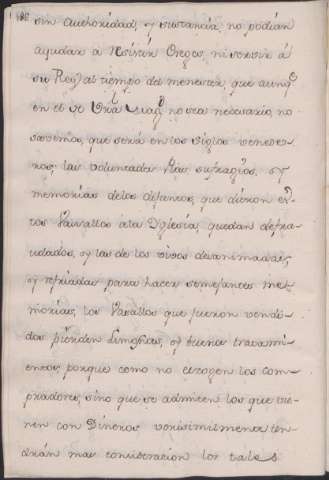 sin authoridad, y sustancia, no podian
ayudar à resistir Orego, ni servir á
su Rey al tiempo del menester, que aunq.e
en el de Vra. Mag.d no sea necesario, no
savemos, que será en los siglos venede-
ros; las voluntades, sufragios, y
memorias delos difuntos, que dieron es-
tos Vasallos ala Yglesia, quedan defra-
udados, y las de los vivos desanimadas,
y resfriadas para hacer semejantes me-
morias, los Vasallos que fueron vendi-
dos pierden limosnas, y buenos tratami-
entos, porque como no escogen los com-
pradores, sino que se admiten los que vie-
nen con Dineros verisimilmente ten-
drán mas consideracion los tales